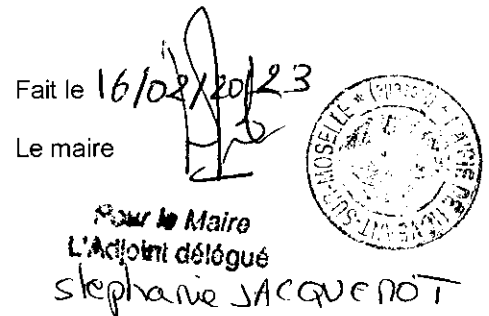 Fait le 16/02/2023
Le maire
Pour le Maire
L'Adjoint délégué
stephanie JACQUENOT
SUR-MOSELLE * (Moselle)